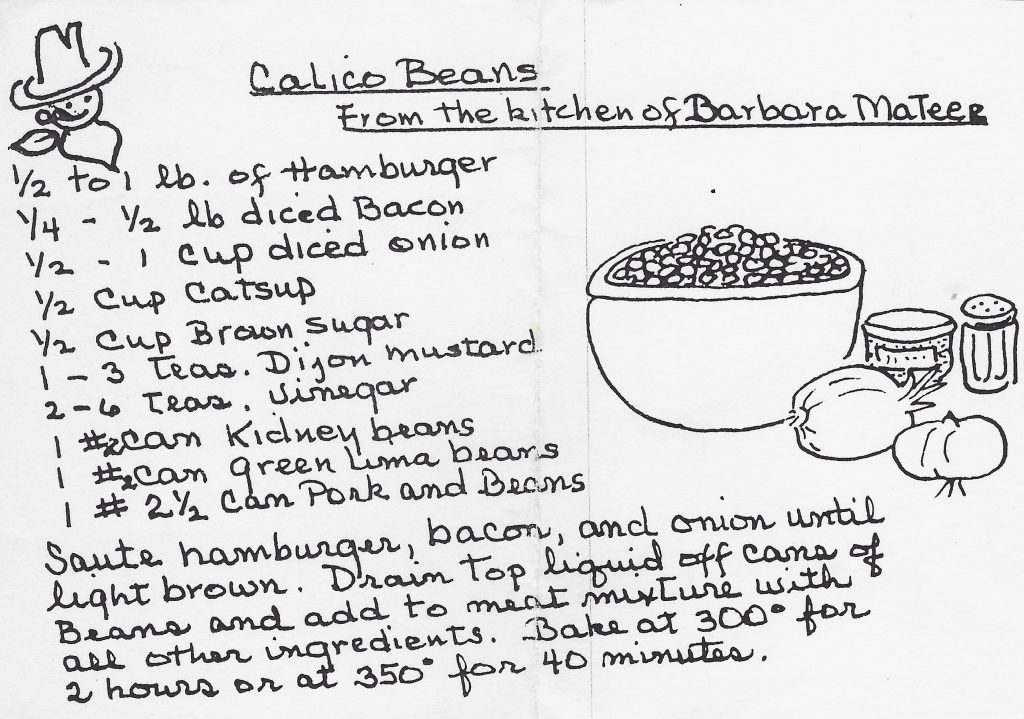 Calico Beans
From the kitchen of Barbara MaTeer
1/2 to 1 lb. of Hamburger
1/4 - 1/2 lb diced Bacon
1/2 - 1 cup diced onion
1/2 Cup Catsup
1/2 Cup Brown Sugar
1 - 3 Teas. Dijon mustard
2-6 Teas. Vinegar
1 #2 can Kidney beans
1 #2 can green lima beans
1 # 2 1/2 can Pork and Beans
Saute hamburger, bacon, and onion until
light brown. Drain top liquid off cans of
Beans and add to meat mixture with
all other ingredients. Bake at 300° for
2 hours or at 350° for 40 minutes.